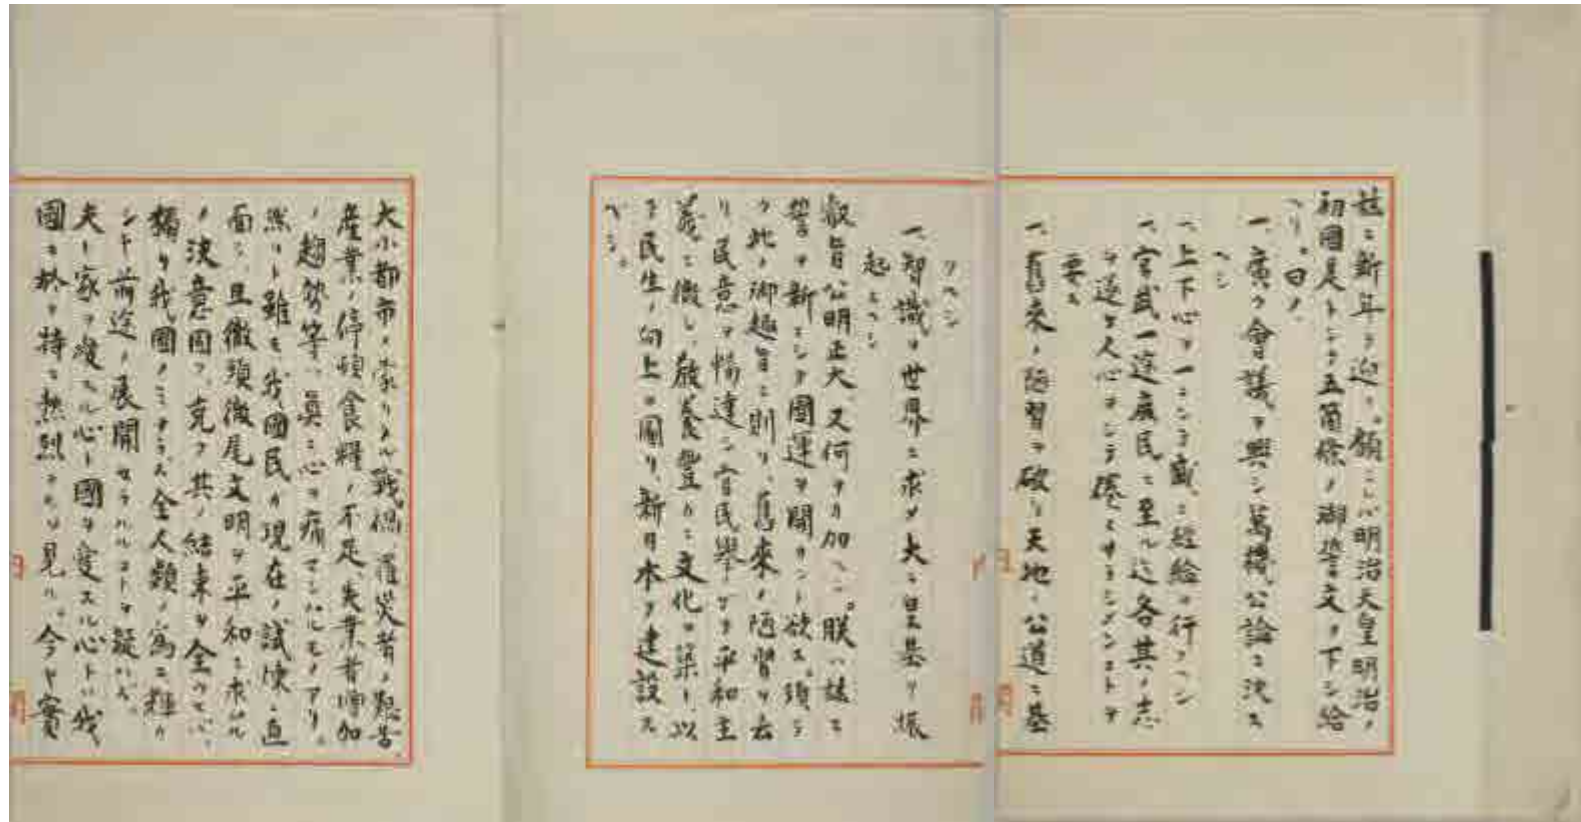 茲ニ新年ヲ迎フ。顧ミレバ明治天皇明治ノ
初國是トシテ五箇條ノ御誓文ヲ下シ給
ヘリ。曰ク、
一、廣ク會議ヲ興シ萬機公論ニ決ス
ヘシ
一、上下心ヲ一ニシテ盛ニ經綸ヲ行フヘシ
一、官武一途庶民ニ至ル迄各其ノ志
ヲ遂ケ人心ヲシテ倦マサラシメンコトヲ
要ス
一、舊來ノ陋習ヲ破リ天地ノ公道ニ基
クヘシ
一、智識ヲ世界ニ求メ大ニ皇基ヲ振
起スヘシ
叡旨公明正大、又何ヲカ加ヘン。朕ハ茲ニ
誓ヲ新ニシテ國運ヲ開カント欲ス。須ラ
ク此ノ御趣旨ニ則リ、舊來ノ陋習ヲ去
リ、民意ヲ暢達シ、官民擧ゲテ平和主
義ニ徹シ、敎養豐カニ文化ヲ築キ、以
テ民生ノ向上ヲ圖リ、新日本ヲ建設ス
ベシ。
大小都市ノ蒙リタル戰禍、罹災者ノ艱苦、
産業ノ停頓、食糧ノ不足、失業者增加
ノ趨勢等ハ眞ニ心ヲ痛マシムルモノアリ。
然リト雖モ、我國民ガ現在ノ試煉ニ直
面シ、且徹頭徹尾文明ヲ平和ニ求ムル
ノ決意固ク、克ク其ノ結束ヲ全ウセバ、
獨リ我國ノミナラズ全人類ノ爲ニ輝カ
シキ前途ノ展開セラルルコトヲ疑ハズ。
夫レ家ヲ愛スル心ト國ヲ愛スル心トハ我
國ニ於テ特ニ熱烈ナルヲ見ル。今ヤ實